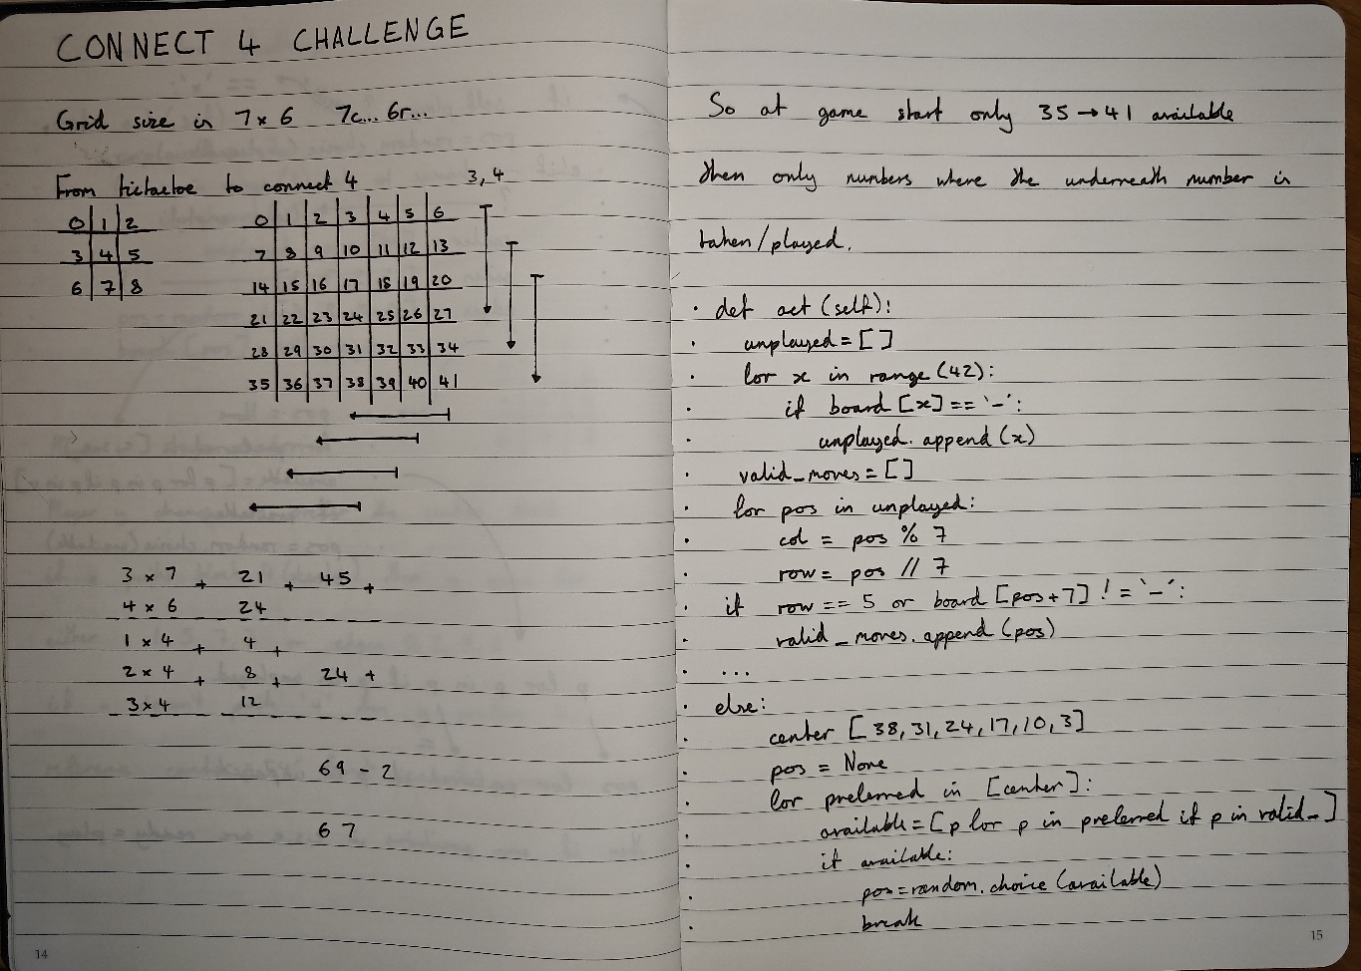 CONNECT 4 CHALLENGE
Grid size is 7 x 6 7c... 6r...
From tictactoe to connect 4
3, 4
0 1 2
3 4 5
6 7 8
0 1 2 3 4 5 6
7 8 9 10 11 12 13
14 15 16 17 18 19 20
21 22 23 24 25 26 27
28 29 30 31 32 33 34
35 36 37 38 39 40 41
3 x 7 + 21 + 45 +
4 x 6 24
1 x 4 + 4 +
2 x 4 + 8 + 24 +
3 x 4 12
69 - 2
67
14
So at game start only 35 → 41 available
then only numbers where the underneath number is
taken/played.
· def act (self):
· unplayed = [ ]
· for x in range (42):
· if board [x] == '-':
· unplayed. append (x)
· valid_moves = [ ]
· for pos in unplayed:
· col = pos % 7
· row = pos // 7
· if row == 5 or board [pos+7] != '-':
· valid_moves. append (pos)
· ...
· else:
· center [38, 31, 24, 17, 10, 3]
· pos = None
· for preferred in [center]:
· available = [p for p in preferred if p in valid_]
· if available:
· pos = random. choice (available)
· break
15